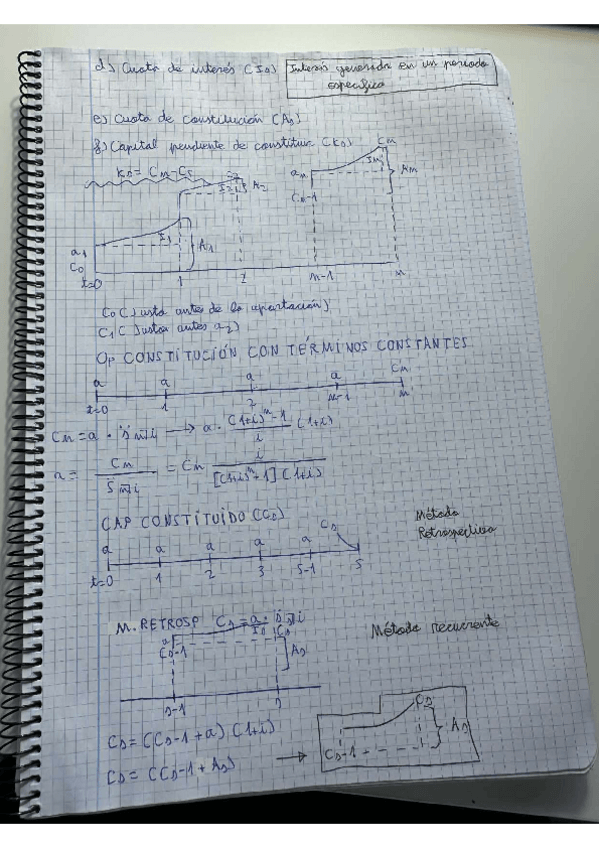 d) Cuota de interés (Is) Interés generado en un periodo
específico
e) Cuota de constitución (As)
f) Capital pendiente de constituir (Ks)
Ks = Cn - Cs
Cn
an
In
An
Cn-1
I2
A2
a1
I1
A1
C0
t=0 1 2 n-1 n
C0 (Justo antes de la aportación)
C1 ( Justo antes a2)
Op CONSTITUCIÓN CON TÉRMINOS CONSTANTES
a a a a Cn
t=0 1 2 n-1 n
Cn = a · s̈n̅|i → a · (1+i)^n - 1 / i (1+i)
a = Cn / s̈n̅|i = Cn i / [(1+i)^n + 1] (1+i)
CAP CONSTITUIDO (Cs)
Método
Retrospectivo
a a a a a Cs
t=0 1 2 3 s-1 s
M. RETROSP Cs = a · s̈s̅|i
Método recurrente
a
Is
Cs
Cs-1
As
s-1 s
Cs = (Cs-1 + a) (1+i)
Cs = (Cs-1 + As)
→
Cs
Cs-1
As